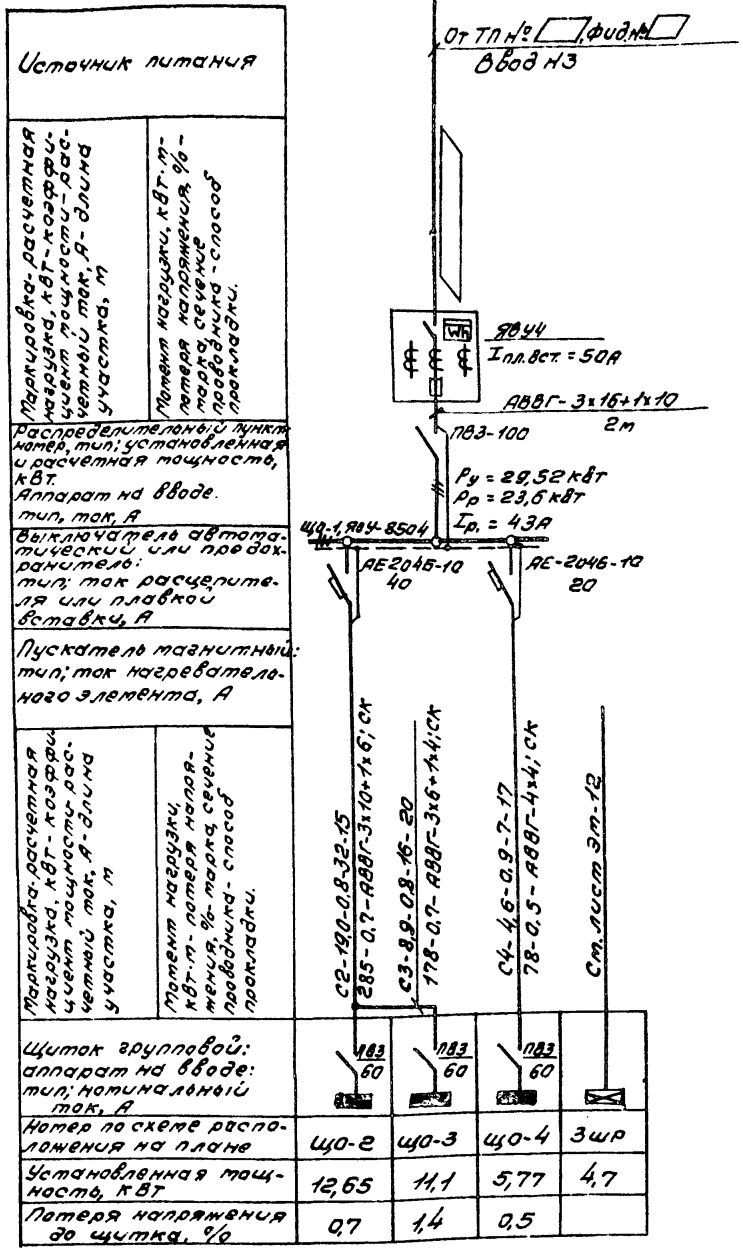 Источник питания
От ТП №       , фид.№
Ввод н3
Маркировка-расчетная
нагрузка, кВт-коэффи-
циент мощности-рас-
четный ток, А-длина
участка, м
Момент нагрузки, кВт·м-
потеря напряжения, %-
марка, сечение
проводника-способ
прокладки.
Wh
ЯВУ4
Iпл.вст. = 50А
АВВГ-3х16+1х10
2м
Распределительный пункт:
номер, тип; установленная
и расчетная мощность,
кВт.
Аппарат на вводе.
тип, ток, А
ПВ3-100
Ру = 29,52 кВт
Рр = 23,6 кВт
Iр. = 43А
ЩО-1, ЯОУ-8504
Выключатель автома-
тический или предох-
ранитель:
тип; ток расцепите-
ля или плавкой
вставки, А
АЕ2046-10
40
АЕ-2046-10
20
Пускатель магнитный:
тип; ток нагреватель-
ного элемента, А
Маркировка-расчетная
нагрузка, кВт-коэффи-
циент мощности-рас-
четный ток, А-длина
участка, м
Момент нагрузки,
кВт·м-потеря напря-
жения, %-марка, сечение
проводника-способ
прокладки.
С2-19,0-0,8-32-15
285-0,7-АВВГ-3х10+1х6; СК
С3-8,9-0,8-16-20
178-0,7-АВВГ-3х6+1х4; СК
С4-4,6-0,9-7-17
78-0,5-АВВГ-4х4; СК
См. лист ЭТ-12
Щиток групповой:
аппарат на вводе:
тип; номинальный
ток, А
ПВ3
60
ПВ3
60
ПВ3
60
Номер по схеме распо-
ложения на плане
ЩО-2 ЩО-3 ЩО-4 3ШР
Установленная мощ-
ность, кВт
12,65 11,1 5,77 4,7
Потеря напряжения
до щитка, %
0,7 1,4 0,5